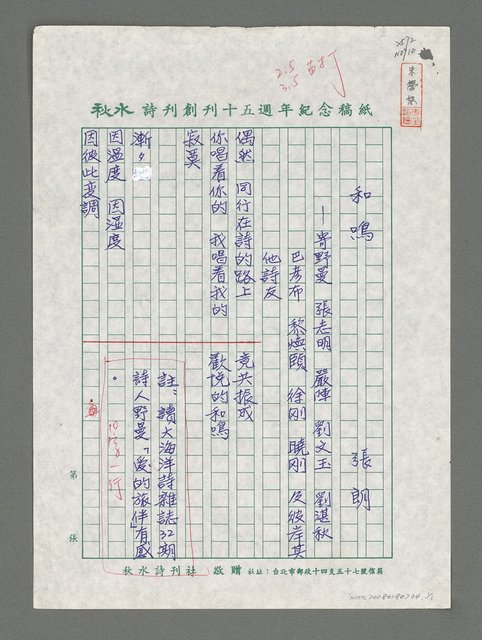 2572
NO/10
2.5
3.5
秋水詩刊創刊十五週年紀念稿紙
和鳴
張朗
—寄野曼 張志明 嚴陣 劉文玉 劉湛秋
巴彥布 黎煥頤 徐剛 曉剛 及彼岸其
他詩友
偶然 同行在詩的路上
你唱着你的 我唱着我的
寂寞
漸漸
因溫度 因濕度
因彼此變調
竟共振成
歡悅的和鳴
註:讀大海洋詩雜誌32期
詩人野曼「愛的旅伴」有感
。
10字一行
第 張
秋水詩刊社 敬贈 社址:台北市郵政十四支五十七號信箱
NMTL20080180234 1/1